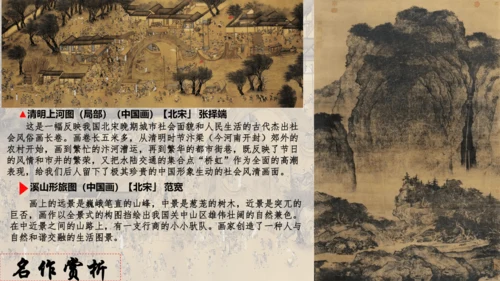 ▲清明上河图（局部）（中国画）【北宋」 张择端
这是一幅反映我国北宋晚期城市社会面貌和人民生活的古代杰出社
会风俗画长卷。画卷长五米多，从清明时节汴梁（今河南开封）郊外的
农村开始，画到繁忙的汴河漕运，再到繁华的都市街巷，既反映了节日
的风情和市井的繁荣，又把水陆交通的集合点“桥虹”作为全画的高潮
表现，给我们后人留下了极其珍贵的中国形象生动的社会风清画面。
溪山形旅图（中国画）【北宋】 范宽
画上的远景是巍峨笔直的山峰，中景是葱茏的树木，近景是突兀的
巨石，画作以全景式的构图挡绘出我国关中山区雄伟壮阔的自然兼色。
在中近景之间的山路上，有一支行商的小小驮队。画家创造了一种人与
自然和谐交融的生活图景。
名作赏析